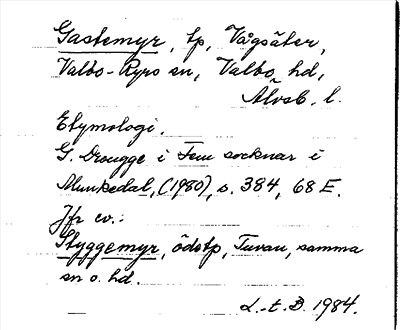 Gastemyr, tp, Vågsäter,
Valbo-Ryrs sn, Valbo hd,
Älvsb. l.
Etymologi.
G. Drougge i Fem socknar i
Munkedal, (1980), s. 384, 68 E.
Jfr ev.:
Styggemyr, ödetp, Tuvan, samma
sn o. hd.
L.-t. D. 1984.